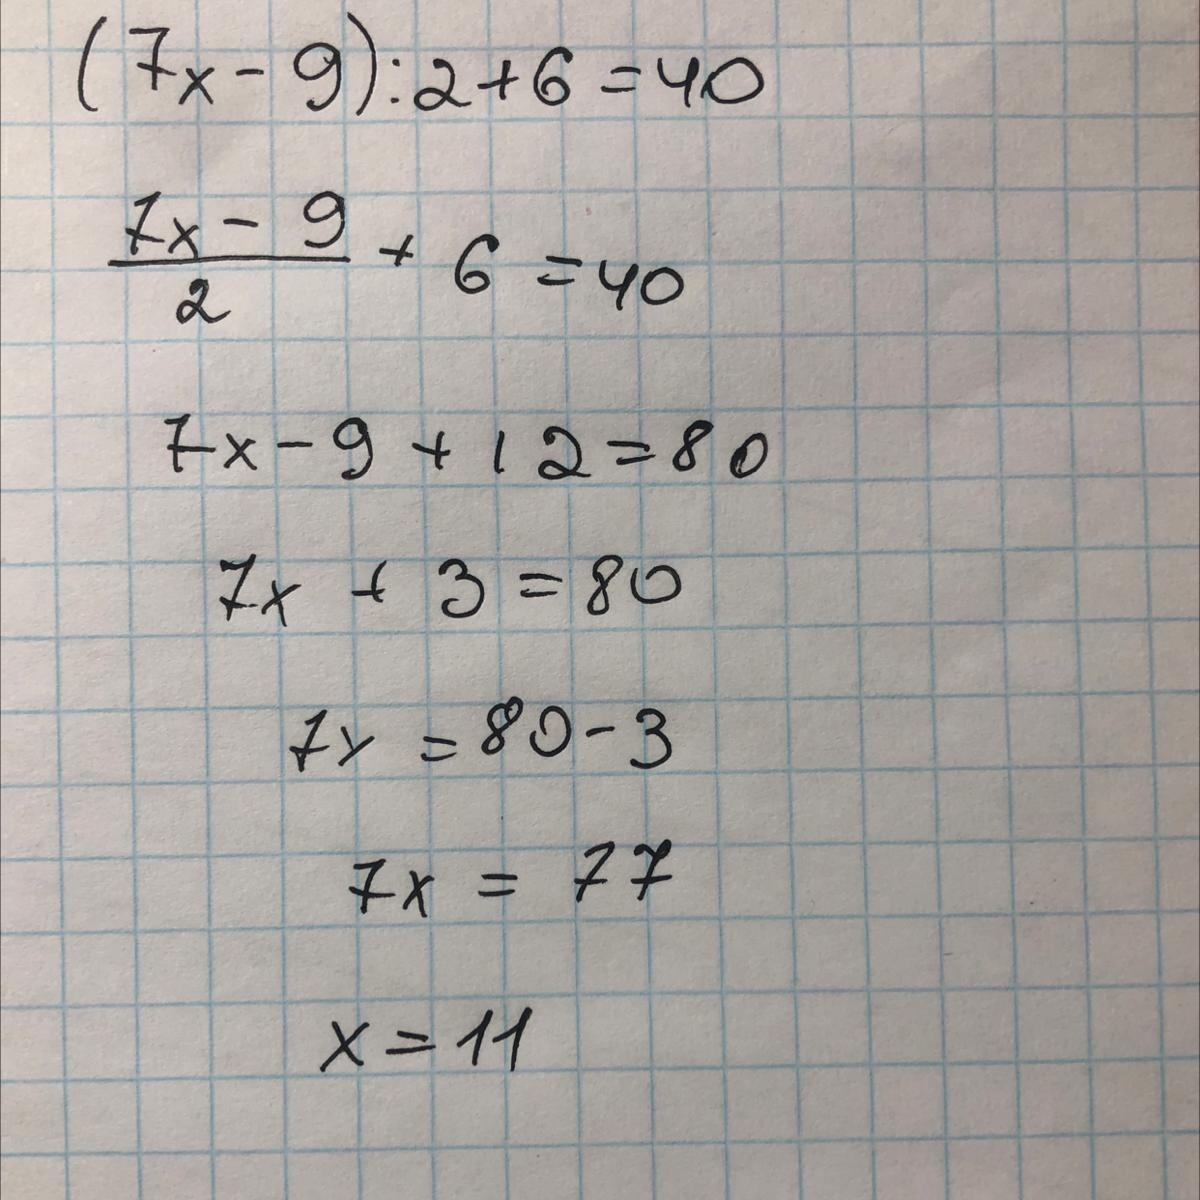 (7x-9):2+6=40
7x-9/2 + 6 =40
7x-9+12=80
7x + 3 =80
7x =80-3
7x = 77
x=11